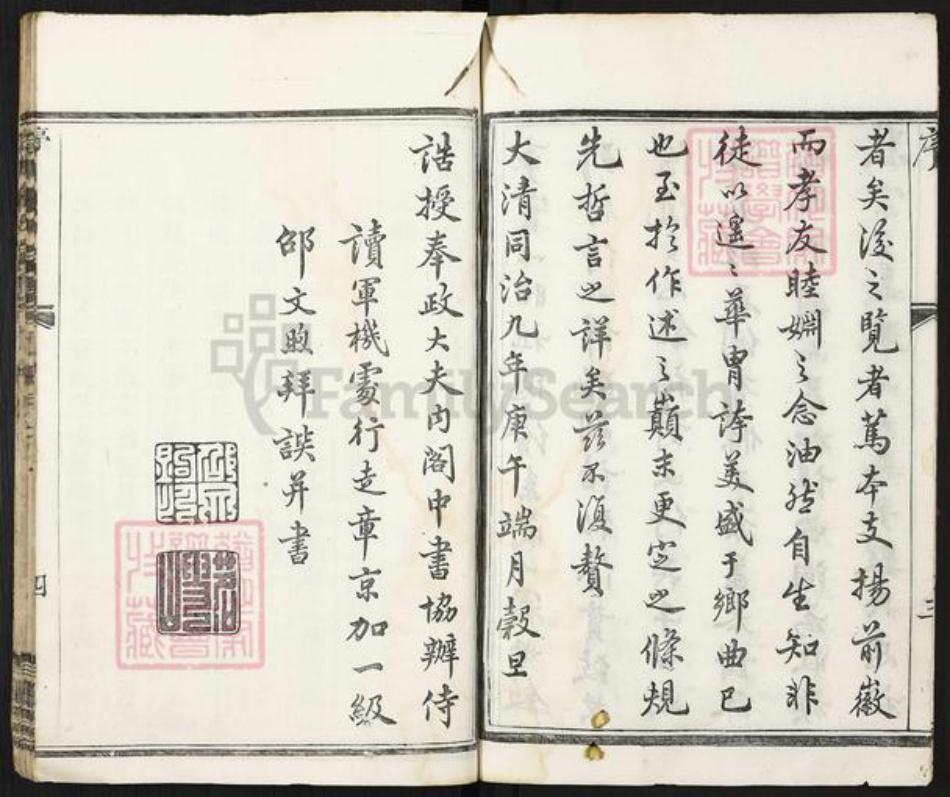 序
者矣後之覽者篤本支揚前徽
而孝友睦婣之念油然自生知非
徒以遥〻華胄誇美盛于鄉曲已
也至於作述之巔末更定之條規
先哲言之詳矣茲不復贅
大清同治九年庚午端月穀旦
三
誥授奉政大夫內閣中書協辦侍
讀軍機處行走章京加一級
邵文煦拜譔并書
序
四
FamilySearch